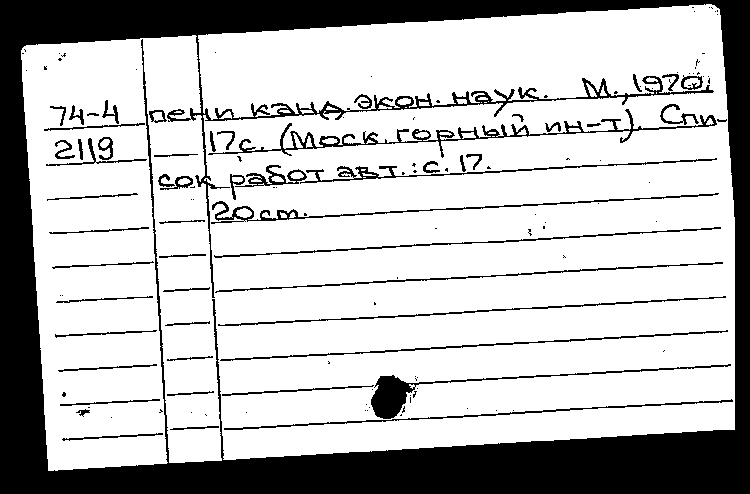 74-4 пени канд. экон. наук. М., 1970.
2119 17с. (Моск. горный ин-т). Спи-
сок работ авт.: с. 17.
20 см.